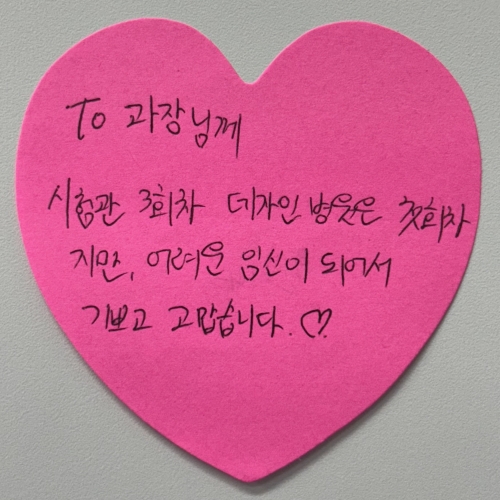 To 과장님께
시험관 3회차 디자인 병원은 첫회차
지만, 어려운 임신이 되어서
기쁘고 고맙습니다. ♡